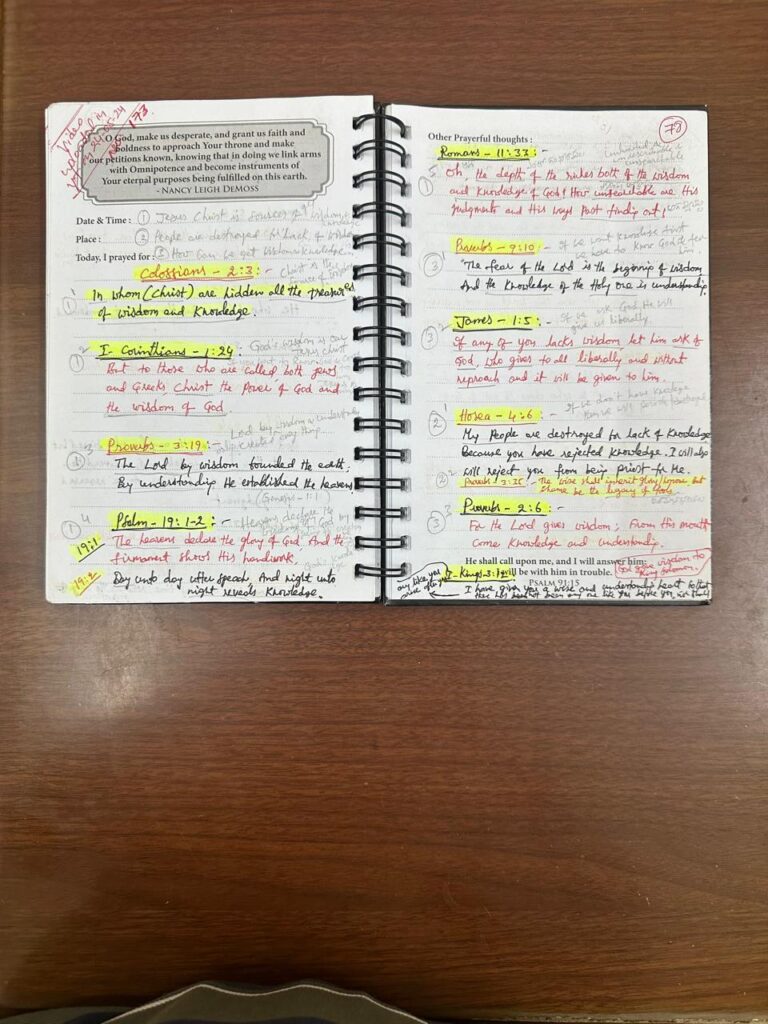 173
O God, make us desperate, and grant us faith and
boldness to approach Your throne and make
our petitions known, knowing that in doing we link arms
with Omnipotence and become instruments of
Your eternal purposes being fulfilled on this earth.
- NANCY LEIGH DEMOSS
Date & Time : ① Jesus Christ is Sources of wisdom & knowledge
Place : ② People are destroyed for lack of wisdom
Today, I prayed for : ③ How can we get wisdom & knowledge
Colossians - 2:3 :- Christ is the
① In whom (Christ) are hidden all the treasures
of wisdom and knowledge.
2
I - Corinthians - 1:24 :- God's wisdom is
① But to those who are called both Jews
and Greeks Christ the Power of God and
the wisdom of God
3
Proverbs - 3:19 :- Lord by wisdom & understanding
① The Lord by wisdom founded the earth,
By understanding He established the heavens
(Genesis - 1:1
4
① Psalm - 19:1-2 :- Heavens declare the
glory of God
19:1 The heavens declare the glory of God And the
firmament shows His handwork.
19:2 Day unto day utter speech, And night unto
night reveals knowledge.
78
Other Prayerful thoughts :
Romans - 11:33 :-
5
① Oh, the depth of the riches both of the wisdom
and knowledge of God! How unsearchable are His
Judgments and His ways Past finding out!
Proverbs - 9:10 :- If we want knowledge
we have to know God & fear
him
③ The fear of the Lord is the beginning of wisdom
And the knowledge of the Holy one is understanding.
James - 1:5 :- If we ask God, He will
give us liberally
③ If any of you lacks wisdom, let him ask of
God, who gives to all liberally and without
reproach and it will be given to him.
Hosea - 4:6 :- If we don't have knowledge
② My People are destroyed for lack of knowledge
Because you have rejected knowledge. I will also
will reject you from being priest for Me.
② Proverbs 3:35 - The wise shall inherit glory
shame be the legacy of fools
Proverbs - 2:6 :-
③ For the Lord gives wisdom; From His mouth
Come knowledge and understanding.
He shall call upon me, and I will answer him;
I will be with him in trouble.
PSALM 91:15
God give wisdom to
King Solomon.
I - Kings - 3:12
I have given you a wise and understanding heart so that
there has not been any one like you before you, nor shall
any like you